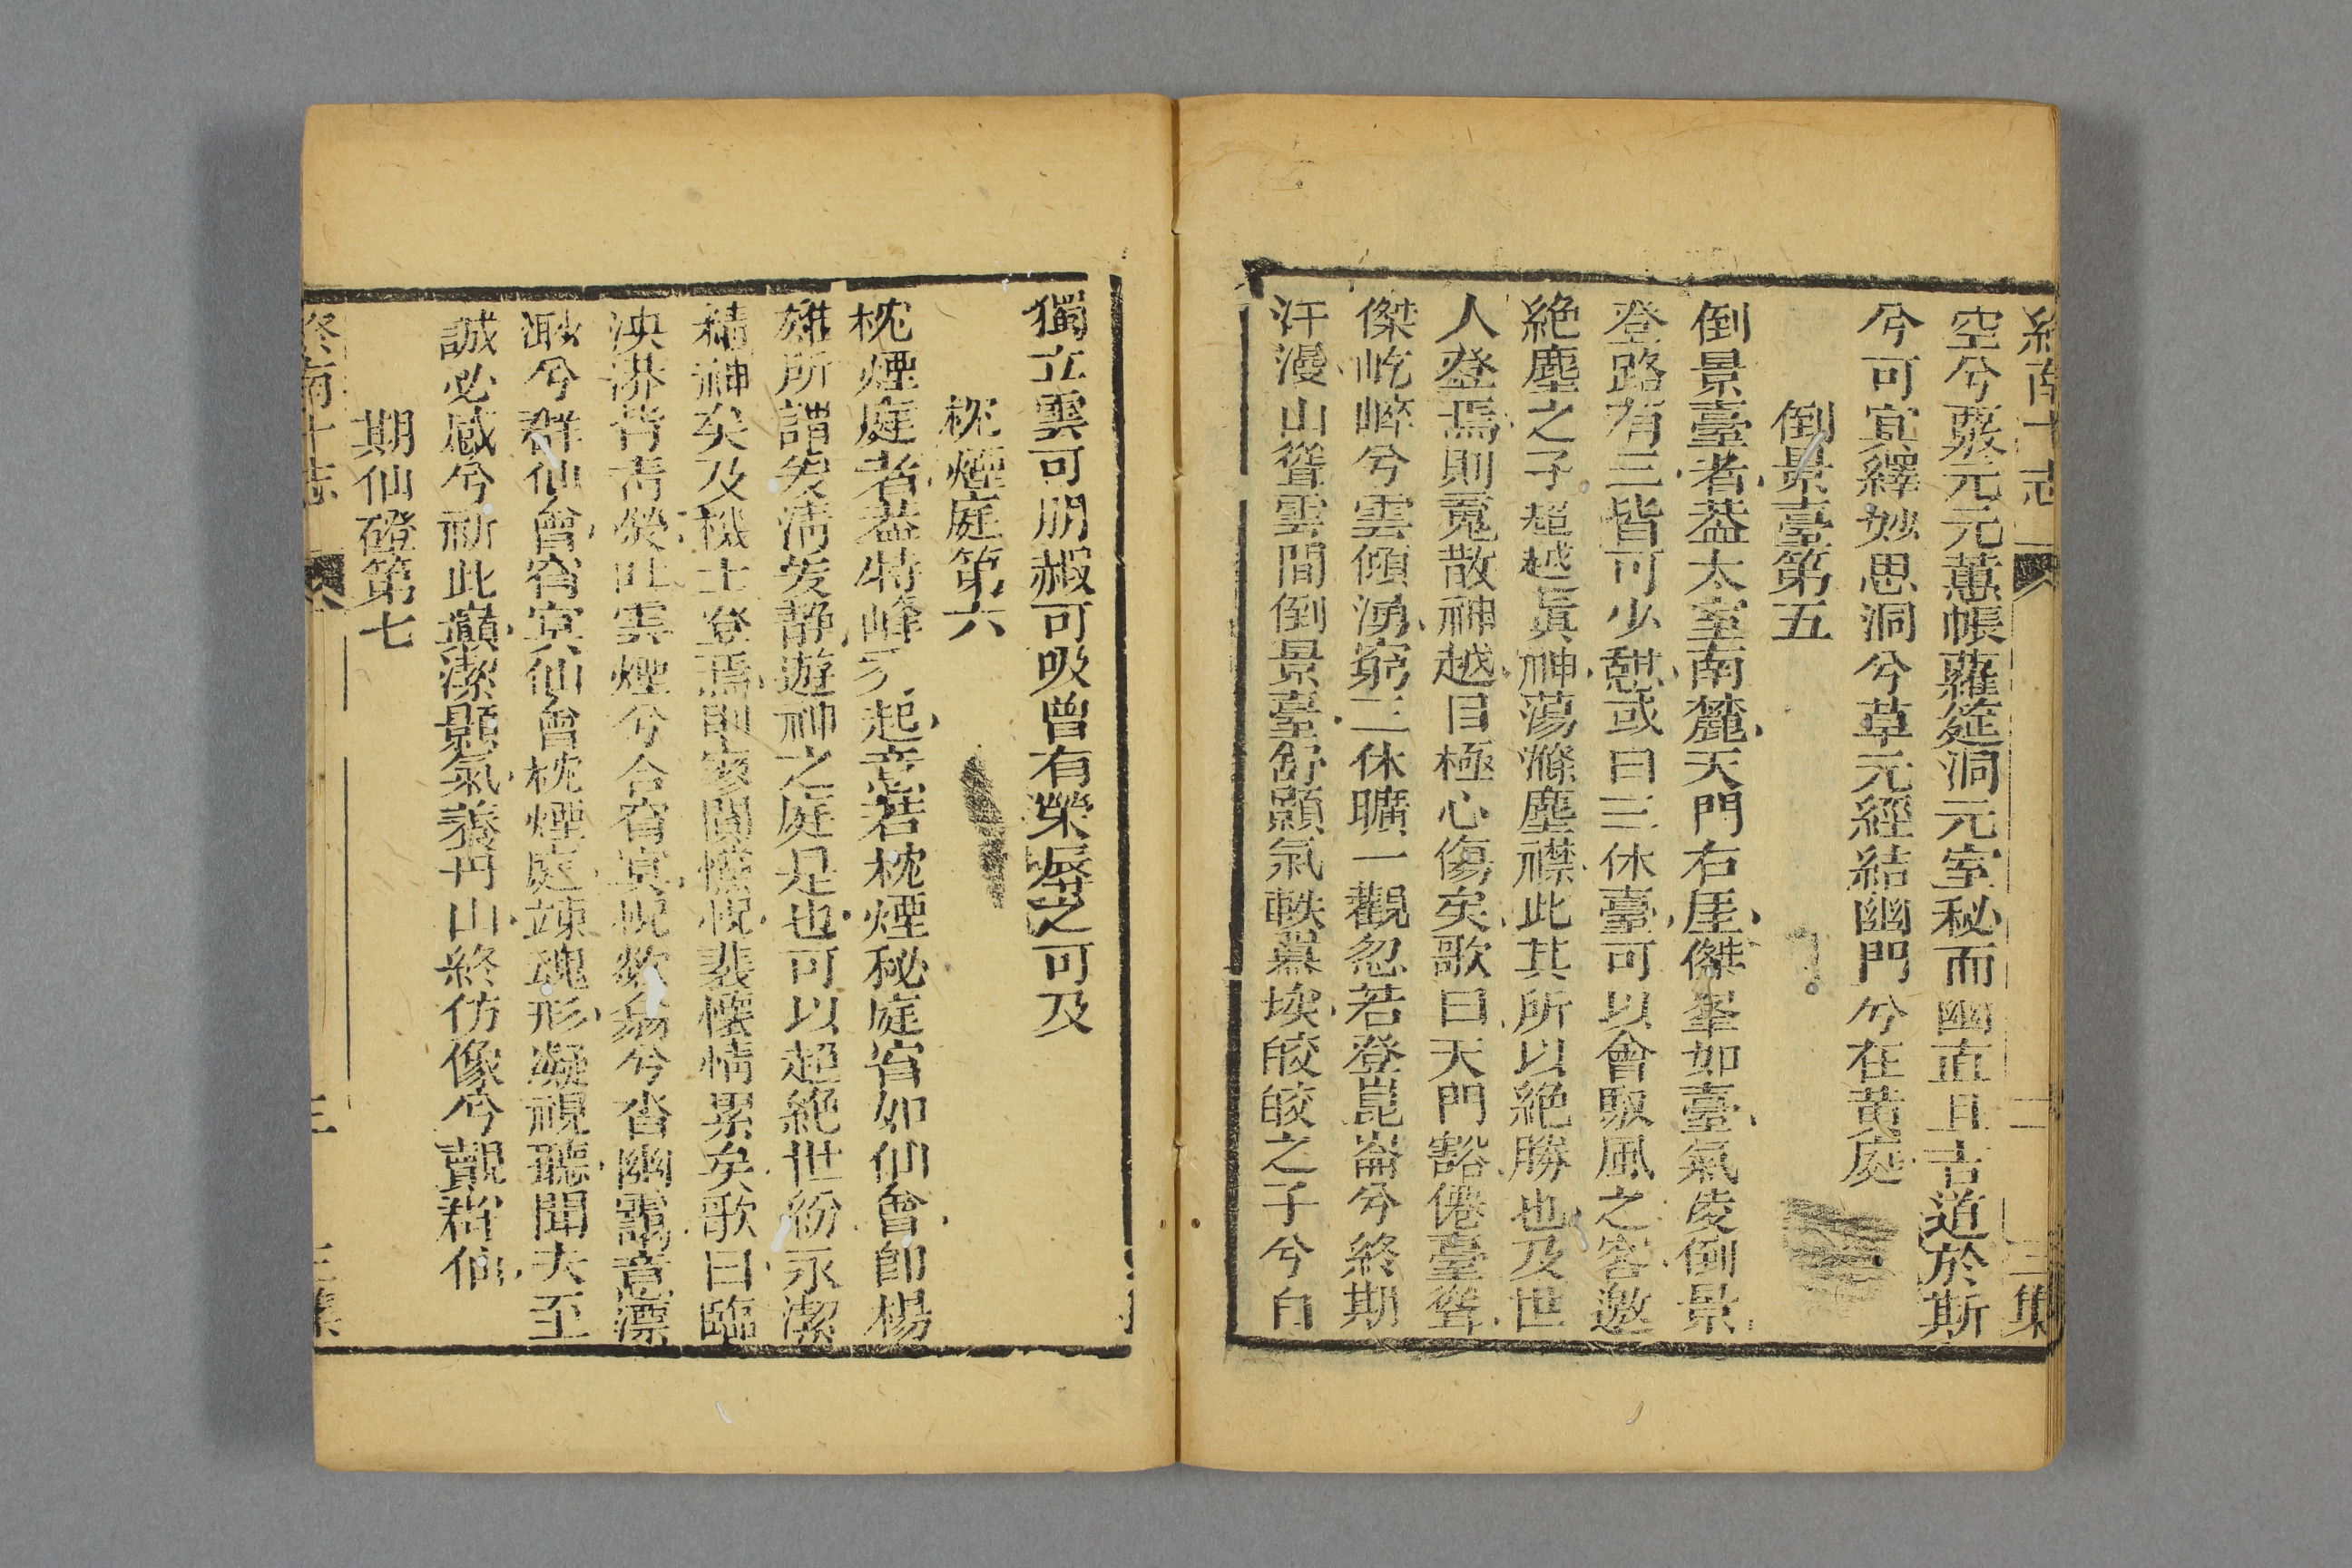 終南十志 二 三集
空兮覈元元蕙帳蘿筵洞元室秘而幽直且吉道於斯
兮可寘繹妙思洞兮草元經結幽門兮在黃庭
倒景臺第五
倒景臺者葢太室南麓天門右厓傑峯如臺氣凌倒景
登路有三皆可少憩或曰三休臺可以會馭風之客邀
絶塵之子超越眞神蕩滌塵襟此其所以絶勝也及世
人登焉則䰟散神越目極心傷矣歌曰天門豁僊臺聳
傑屹崪兮雲傾湧窮三休曠一觀忽若登崑崙兮終期
汗漫山聳雲間倒景臺舒顥氣軼囂埃皎皎之子兮自
獨立雲可朋赮可吸曾有榮辱之可及
枕煙庭第六
枕煙庭者葢特峰秀起意若枕煙秘庭窅如仙會卽楊
雄所謂爰清爰静遊神之庭是也可以超絶世紛永潔
精神矣及機士登焉則寥闃憰怳裴懷情累矣歌曰臨
泱漭背青熒吐雲煙兮合窅冥怳欻翕兮沓幽靄意漂
渺兮群仙會窅冥仙會枕煙庭竦魂形凝視聽聞夫至
誠必感兮祈此巔潔顥氣養丹山終仿像兮覿群仙
期仙磴第七
終南十志 三 三集